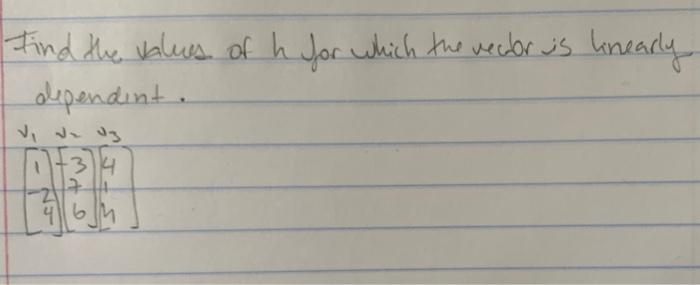 Find the values of h for which the vector is linearly
dependent.
v1 v2 v3
[1] [-3] [4]
[-2] [7] [1]
[4] [6] [h]